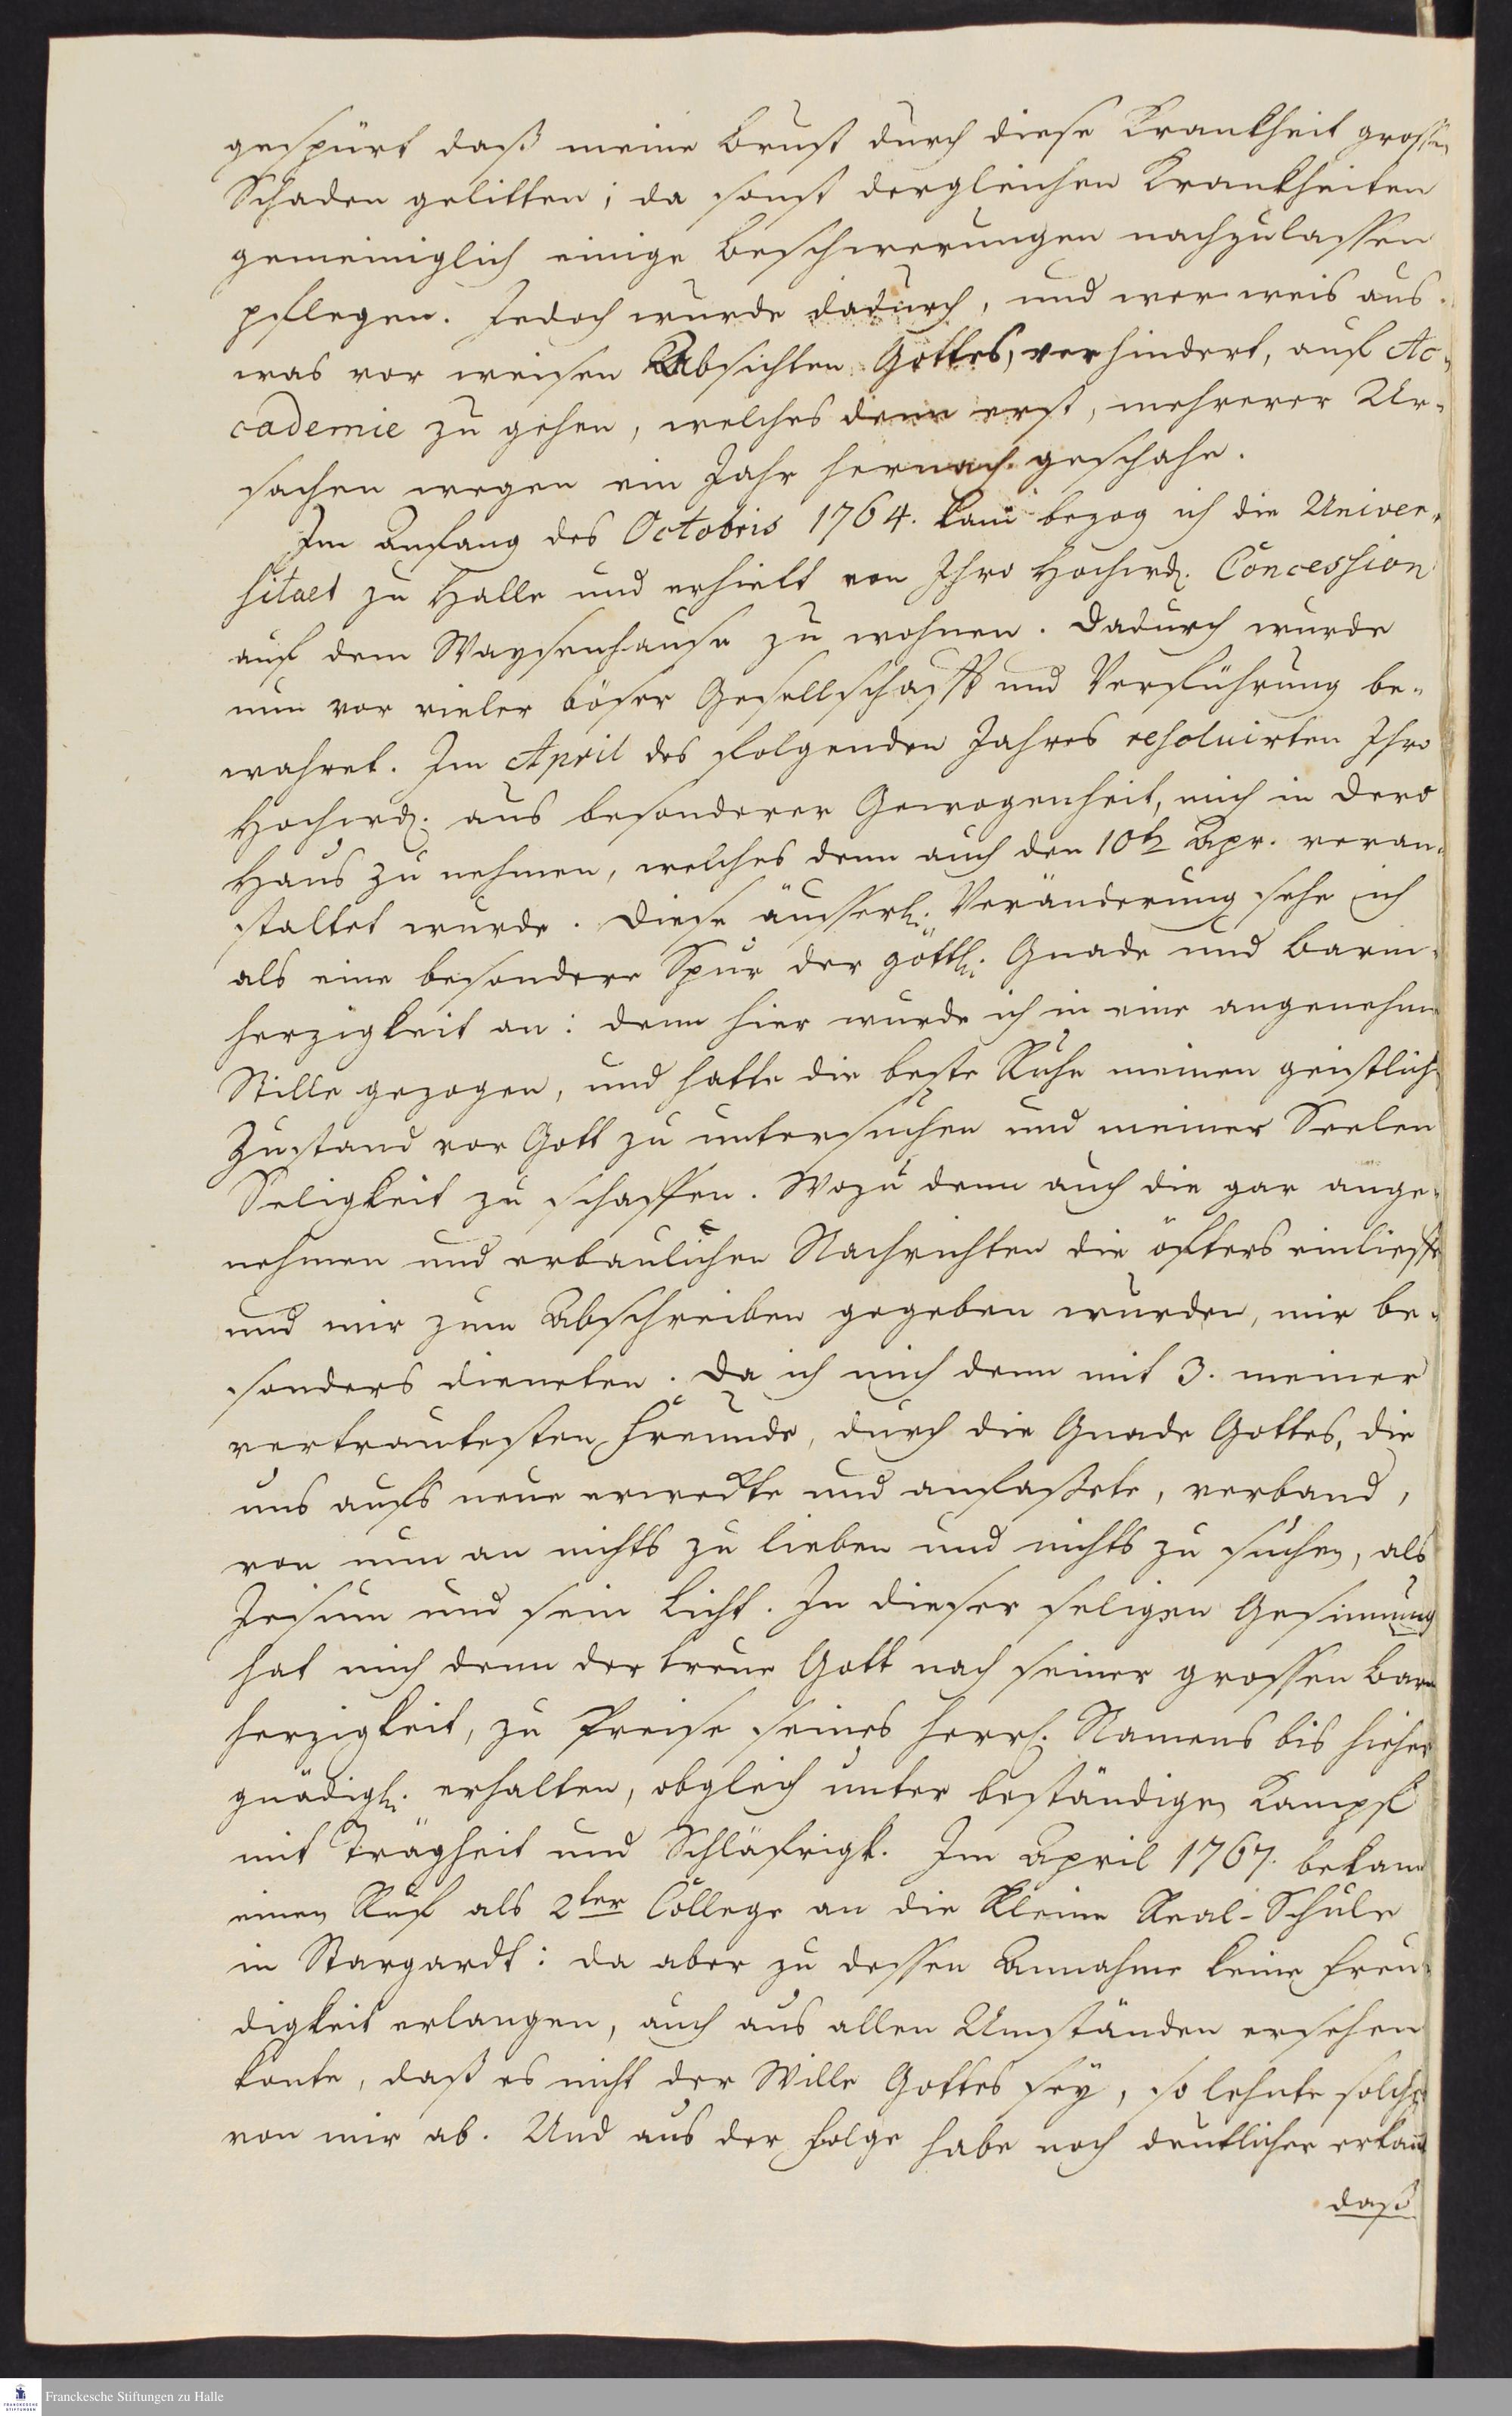 gespürt daß meine Brust durch diese Krankheit grossen
Schaden gelitten; da sonst dergleichen Krankheiten
gemeiniglich einige Beschwerungen nachzulassen
pflegen. Jedoch wurde dadurch, und wer weis aus
was vor weisen Absichten Gottes, verhindert, auf Ac-
cademie zu gehen, welches denn erst, mehrerer Ur-
sachen wegen ein Jahr hernach geschahe.
Im Anfang des Octobris 1764. bezog ich die Univer-
sitaet zu Halle und erhielt von Ihro Hochwd. Concession
auf dem Waysenhause zu wohnen. Dadurch wurde
nun vor vieler böser Gesellschafft und Verführung be-
wahret. Im April des folgenden Jahres resoluirten Ihro
Hochwd. aus besonderer Gewogenheit, mich in Dero
Haus zu nehmen, welches denn auch den 10t Apr. veran-
staltet wurde. Diese äusserl. Veränderung sehe ich
als eine besondere Spur der göttl. Gnade und Barm-
herzigkeit an: denn hier wurde ich in eine angenehme
Stille gezogen, und hatte die beste Ruhe meinen geistlich
Zustand vor Gott zu untersuchen und meiner Seelen
Seligkeit zu schaffen. Wozu denn auch die gar ange-
nehmen und erbaulichen Nachrichten die öfters einlieffe
und mir zum Abschreiben gegeben wurden, mir be-
sonders dieneten. Da ich mich denn mit 3. meiner
vertrautesten Freunde, durch die Gnade Gottes, die
uns aufs neue erweckte und anfaßete, verband,
von nun an nichts zu lieben und nichts zu suchen, als
Jesum und sein Licht. In dieser seligen Gesinnung
hat mich denn der treue Gott nach seiner grossen Barm
herzigkeit, zu Preise seines herrl. Namens bis hieher
gnädigl. erhalten, obgleich unter beständigen Kampf
mit Trägheit und Schläfrigk. Im April 1767. bekam
einen Ruf als 2ter College an die Kleine Real-Schule
in Stargardt: da aber zu dessen Annahme keine Freu-
digkeit erlangen, auch aus allen Umständen ersehen
konte, daß es nicht der Wille Gottes sey, so lehnte solche
von mir ab. Und aus der Folge habe noch deutlicher erkant
daß
Franckesche Stiftungen zu Halle